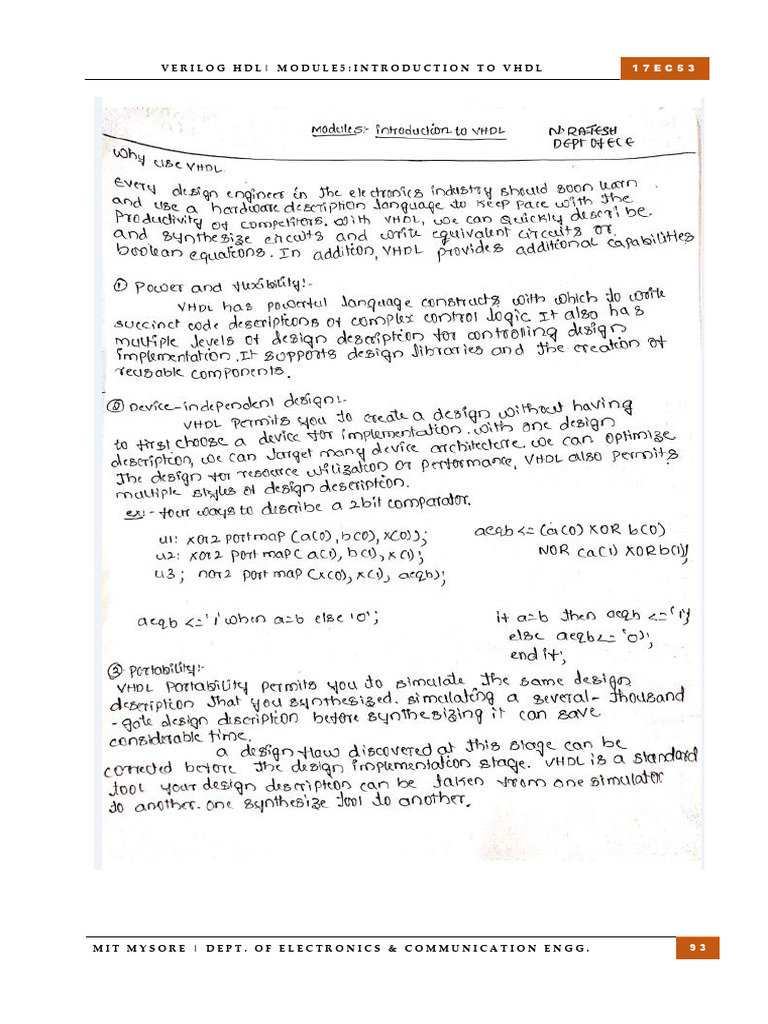 VERILOG HDL| MODULE5:INTRODUCTION TO VHDL
17EC53
Module5:- introduction to VHDL
N RAJESH
DEPT Of ECE
Why use VHDL.
Every design engineer in the electronics industry should soon learn
and use a hardware description language to keep pace with the
Productivity of competitors. With VHDL, we can quickly describe.
and synthesize circuits and write equivalent circuits or
boolean equations. In addition, VHDL provides additional capabilities
① Power and fluxibility:-
VHDL has powerful language constructs with which to write
succinct code descriptions of complex control logic It also has
multiple levels of design description for controlling design
implementation. It supports design libraries and the creation of
reusable components.
② Device-independent design:-
VHDL permits you to create a design without having
to first choose a device for implementation. with one design
description, we can target many device architecture. we can optimize
The design for resource utilization or performance, VHDL also permits
multiple styles of design description.
ex:- four ways to describe a 2bit comparator.
u1: xor2 portmap (a(0), b(0), x(0));
aeqb <= (a(0) XOR b(0)
u2: xor2 port map( a(1), b(1), x(1);
NOR (a(1) XOR b(1));
u3; nor2 port map (x(0), x(1), aeqb);
aeqb <= '1' when a=b else '0';
if a=b then aeqb <= '1';
else aeqb <= '0';
end if;
③ Portability:-
VHDL Portability permits you to simulate the same design
description that you synthesized. simulating a several- thousand
-gate design description before synthesizing it can save
considerable time.
a design flaw discovered at this stage can be
corrected before the design implementation stage. VHDL is a standard
tool your design description can be taken from one simulator
to another. one synthesize tool to another.
MIT MYSORE | DEPT. OF ELECTRONICS & COMMUNICATION ENGG.
93